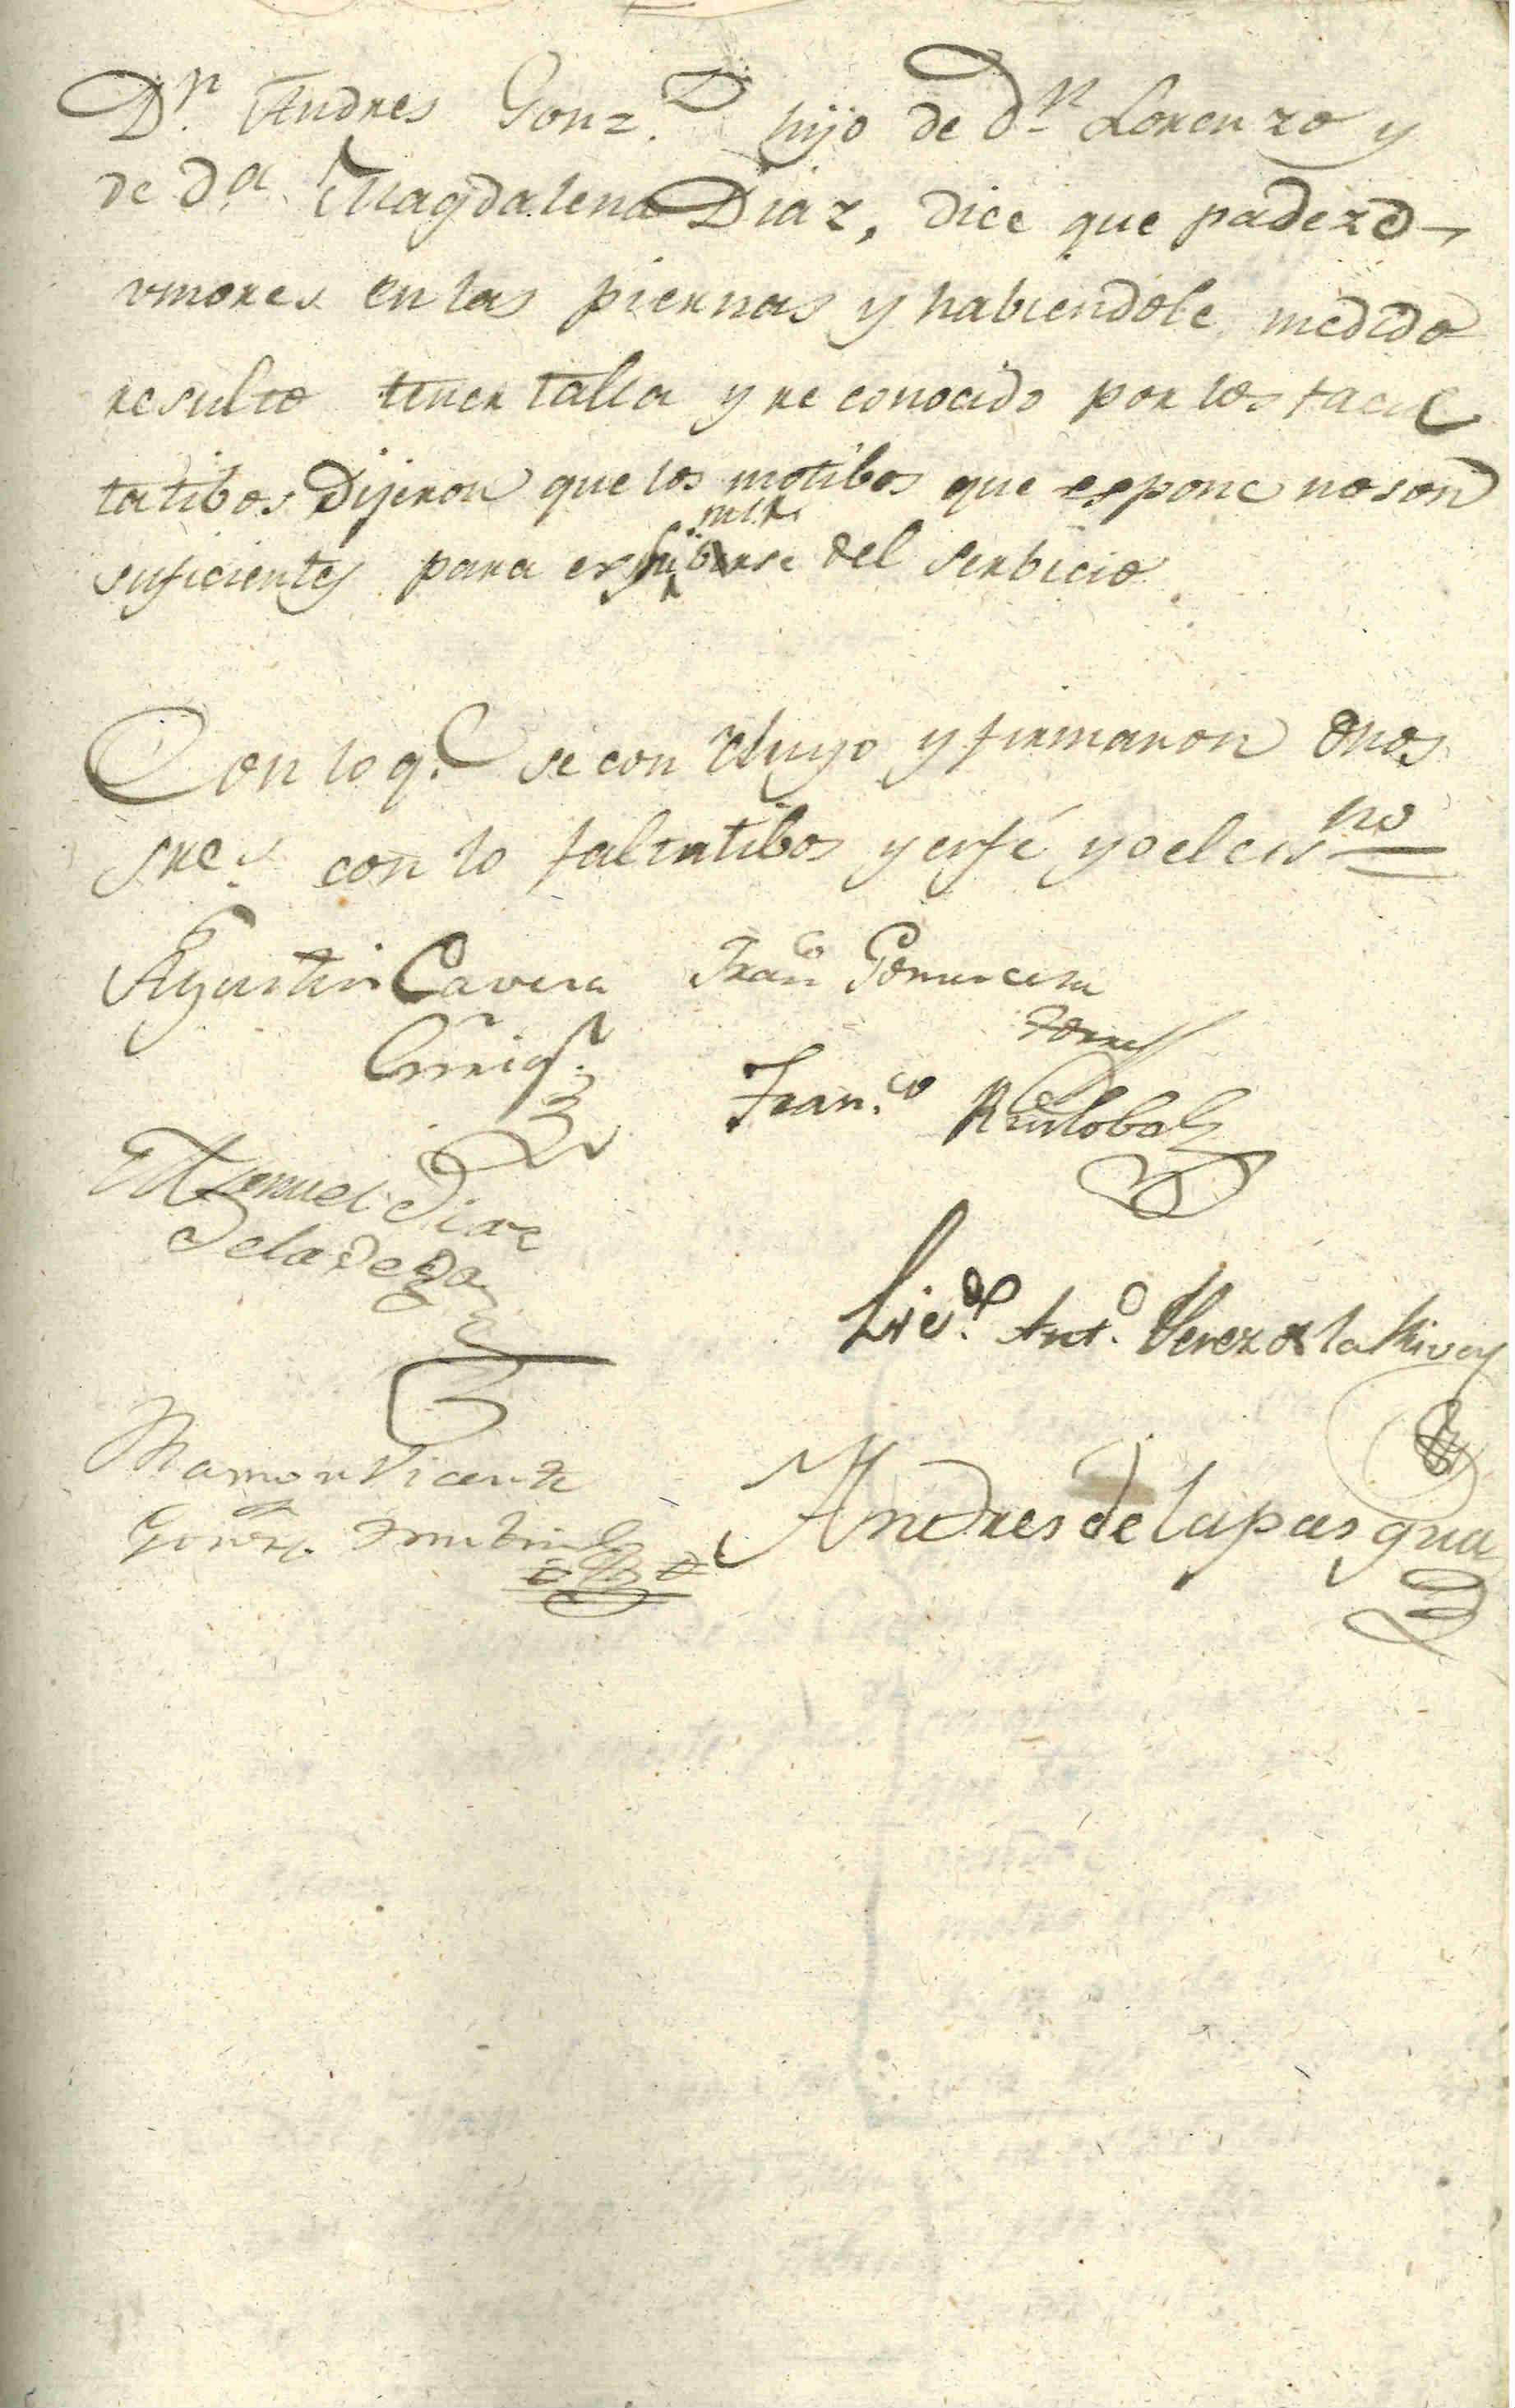 Dn. Andres Gonz. hijo de dn. Lorenzo y
de da. Magdalena Diaz, dice que padeze
vmores en las piernas y habiendole medido
resulto tener talla y reconocido por los facul
tatibos Dijeron que los motibos que espone no son
suficientes para del serbicio.
Con lo q.e se concluyo y firmaron dhos
sres. con lo faltatibos y en fé yo el es.no
Agustin Cavera Fran.co Gomucena
Fran.co Ruilobal
Manuel Diaz
de la Vega
Licdo. Ant.o Perez de la Riva
Ramon Vicente
Gonz.
Andres de la pasqua